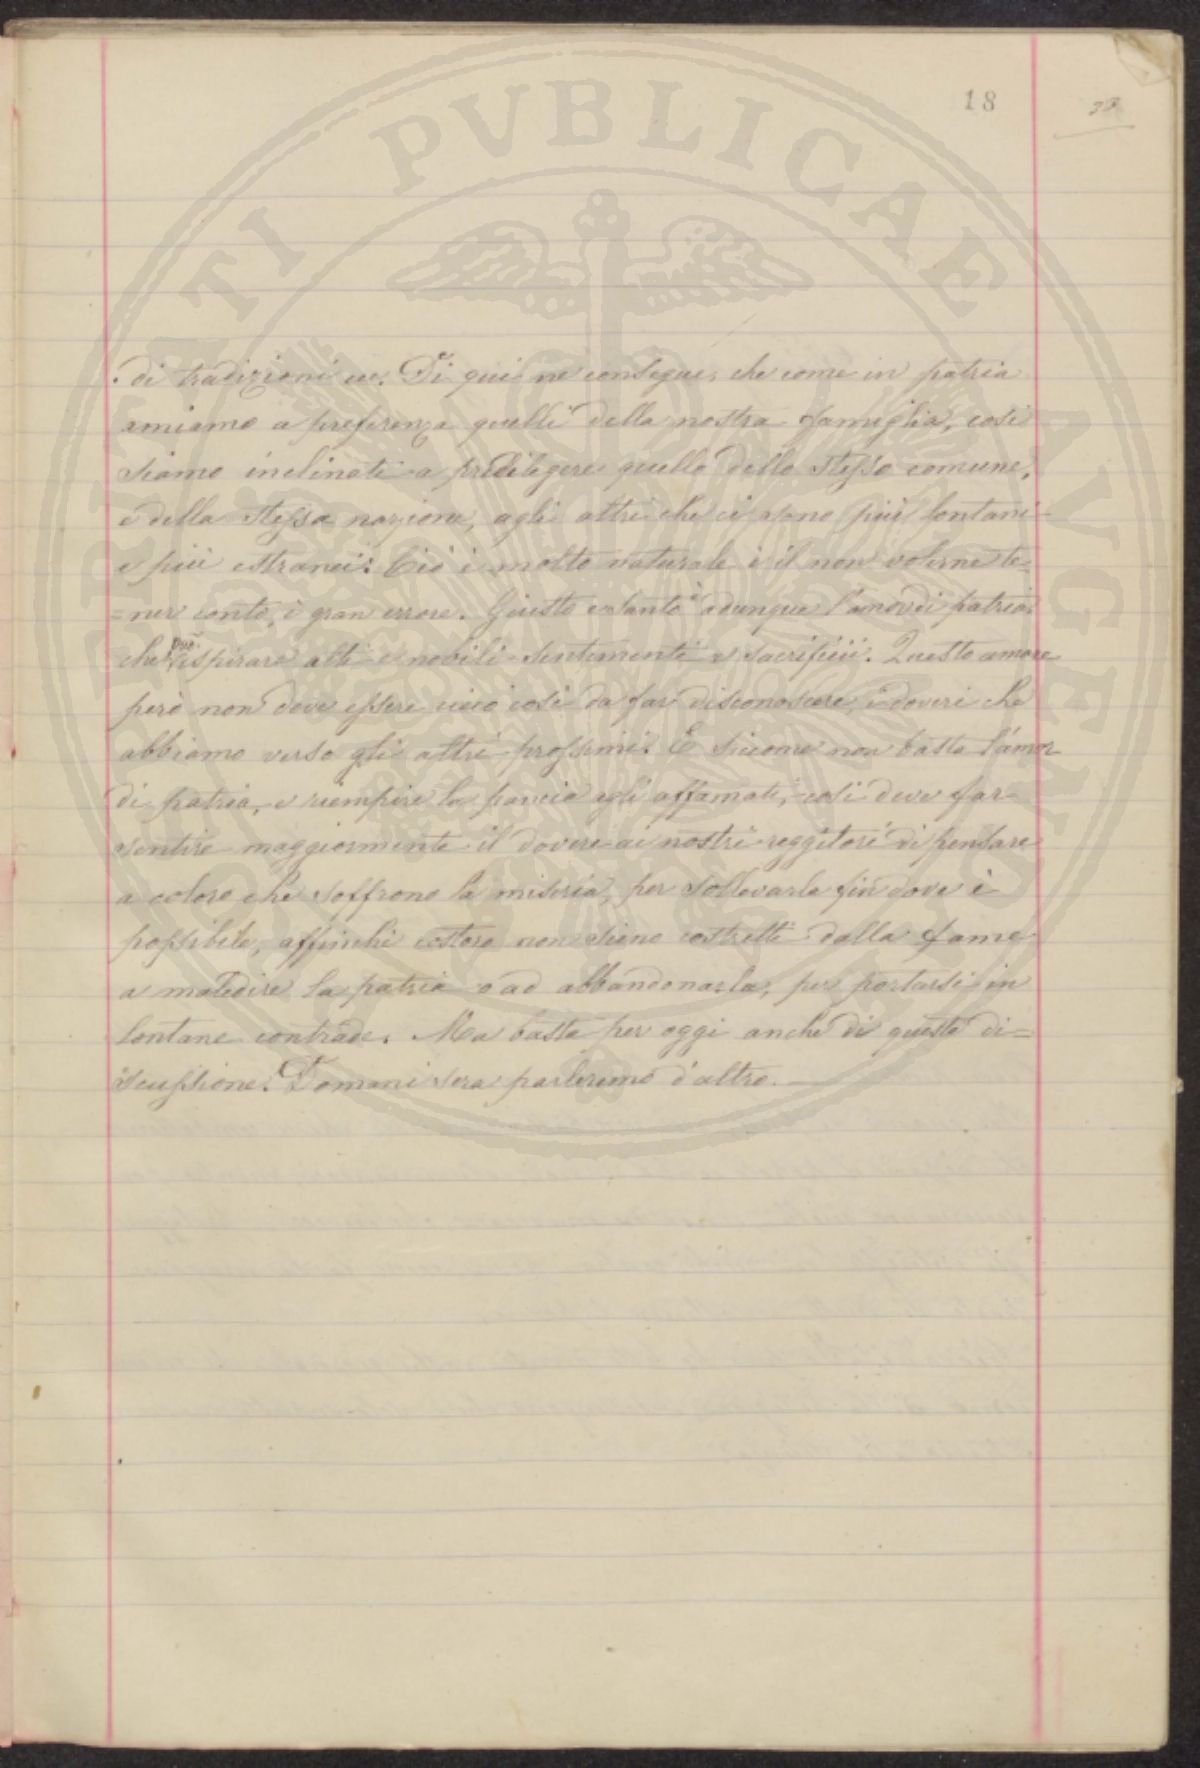 18
di tradizioni ecc. Di qui ne consegue, che come in patria
amiamo a preferenza quelli della nostra famiglia, così
siamo inclinati a prediligere quello dello stesso comune,
e della stessa nazione, agli altri che ci sono più lontani
e più estranei. Ciò è molto naturale e il non volerne te=
=ner conto, è gran errore. Giusto e santo è adunque l'amor di patria
che può ispirare atti e nobili sentimenti e sacrificii. Questo amore
però non deve essere cieco così da far disconoscere, i doveri che
abbiamo verso gli altri prossimi. E siccome non basta l'amor
di patria, a riempire la pancia agli affamati, così deve far
sentire maggiormente il dovere ai nostri reggitori di pensare
a coloro che soffrono la miseria, per sollevarla fin dove è
possibile, affinchè costoro non sieno costretti dalla fame
a maledire la patria o ad abbandonarla, per portarsi in
lontane contrade. Ma basta per oggi anche di questa di=
scussione. Domani sera parleremo d'altro.
PVBLICAE